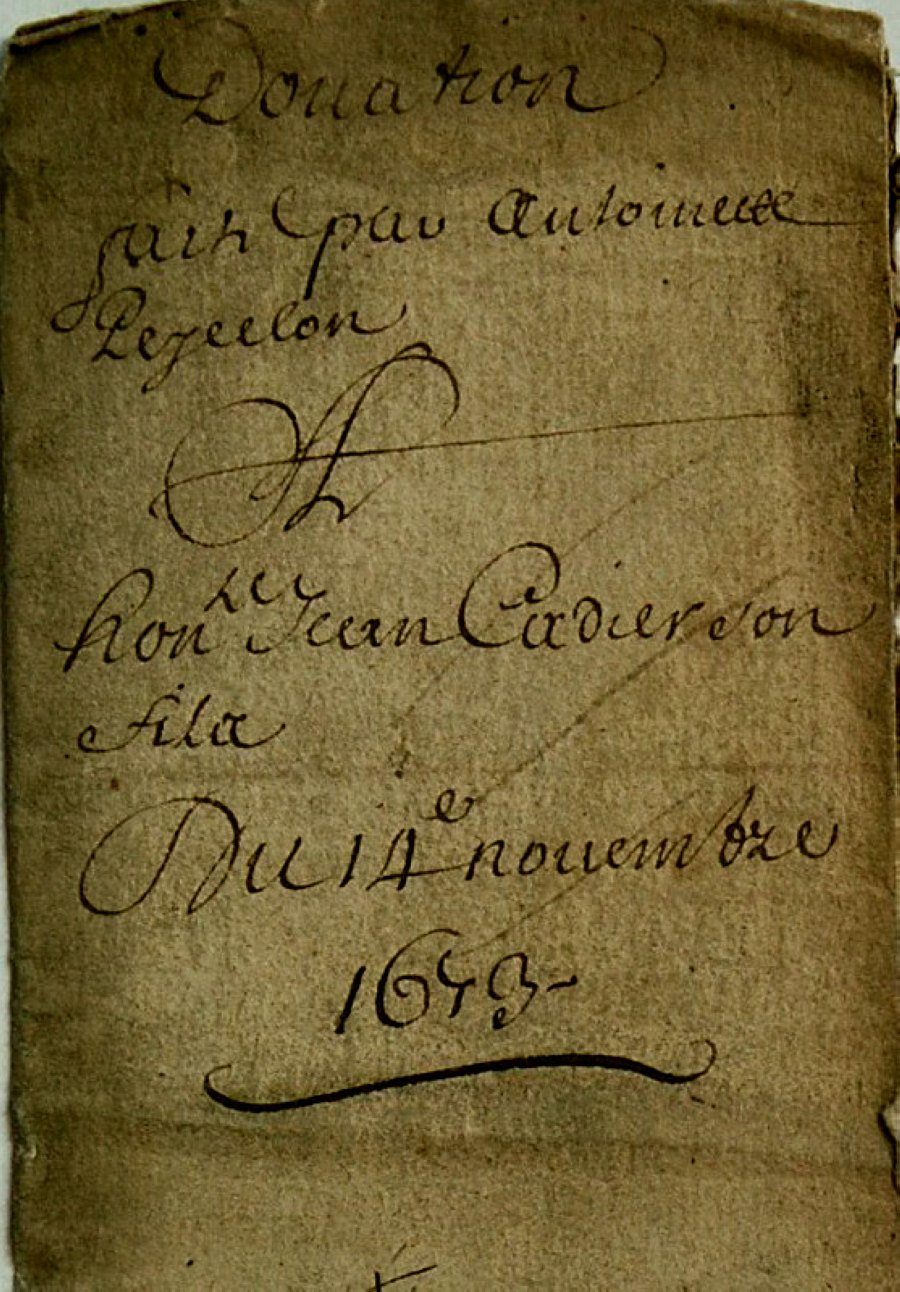 Donation
fait par Antoinette
Peyeelon
A
hon^le Jean Cadier son
fila
Du 14^e novembre
1673